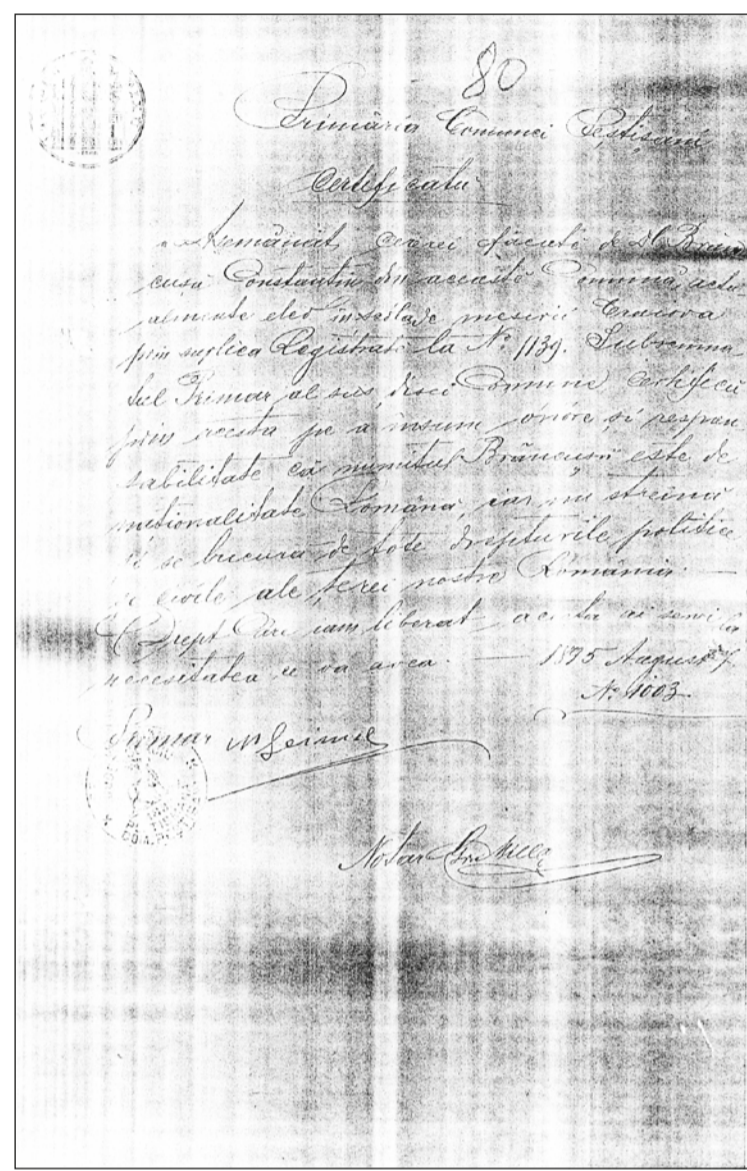 80
Primăria Comunei Peștișani
Certificatu
Asemănat cererei făcută de Dl Brân
cusii Constantin din această Comună, actu
almente elev în scóla de meserii Craiova
prin suplica Registrată la No. 1139. Subsemna
tul Primar al sus disei Comune Certifică
prin acesta pe a însumi onóre și respon
sabilitate că numitul Brâncusii este de
naționalitate Română, iar nu streină
și se bucură de tóte drepturile politice
și civile ale țerei nostre România. —
Drept care iam liberat acesta ai servi la
necesitatea ce va avea. — 1895 August 7
No. 1003
Primar
Notar